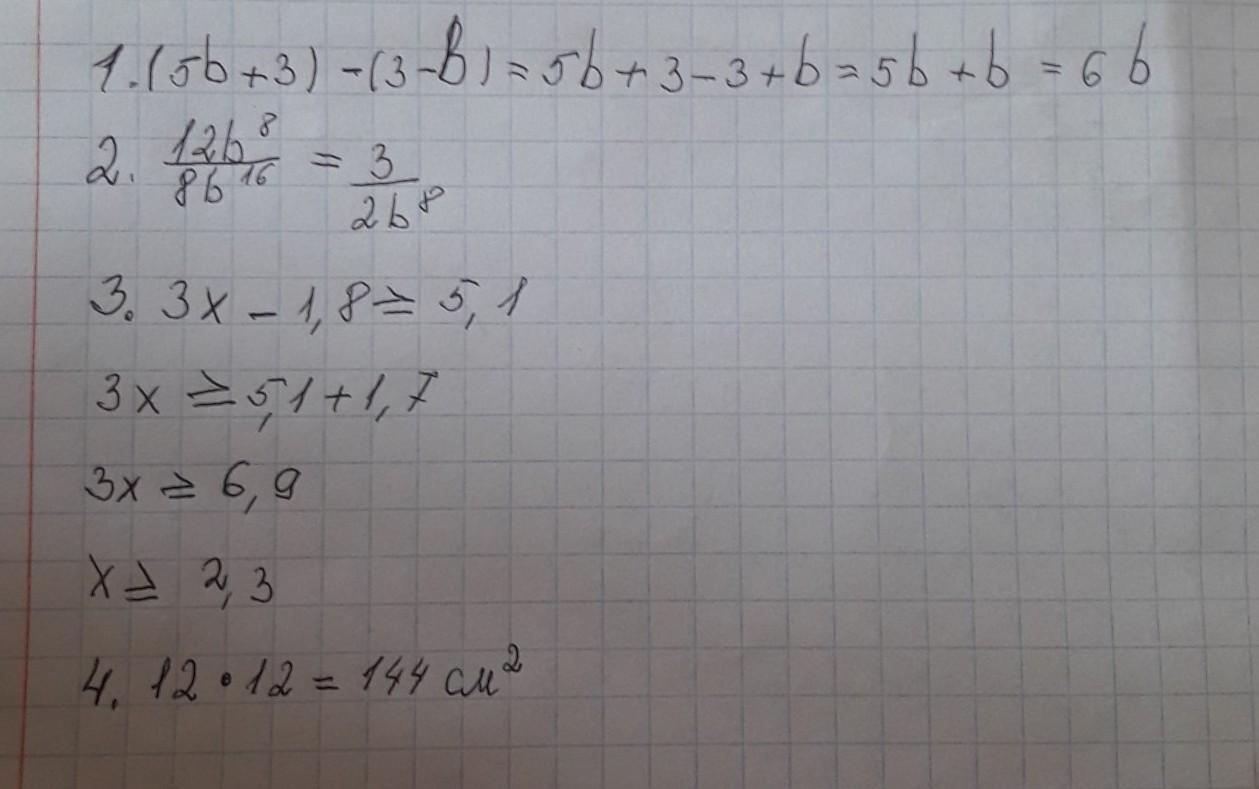 1. (5b+3) - (3-b) = 5b+3-3+b = 5b+b = 6b
2. 12b⁸/8b¹⁶ = 3/2b⁸
3. 3x - 1,8 ≥ 5,1
3x ≥ 5,1+1,7
3x ≥ 6,9
x ≥ 2,3
4. 12 • 12 = 144 см²